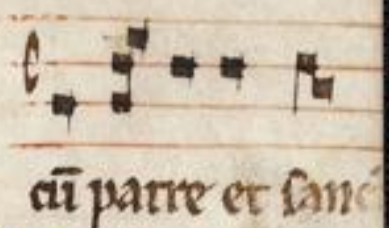 cū patre et sanc